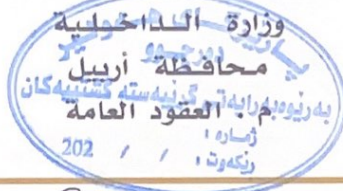 وزارة الداخلية
محافظة أربيل
م. العقود العامة
بەڕێوەبەرایەتی گرێبەستە گشتییەکان
ژمارە :
ڕێکەوت : / / 202